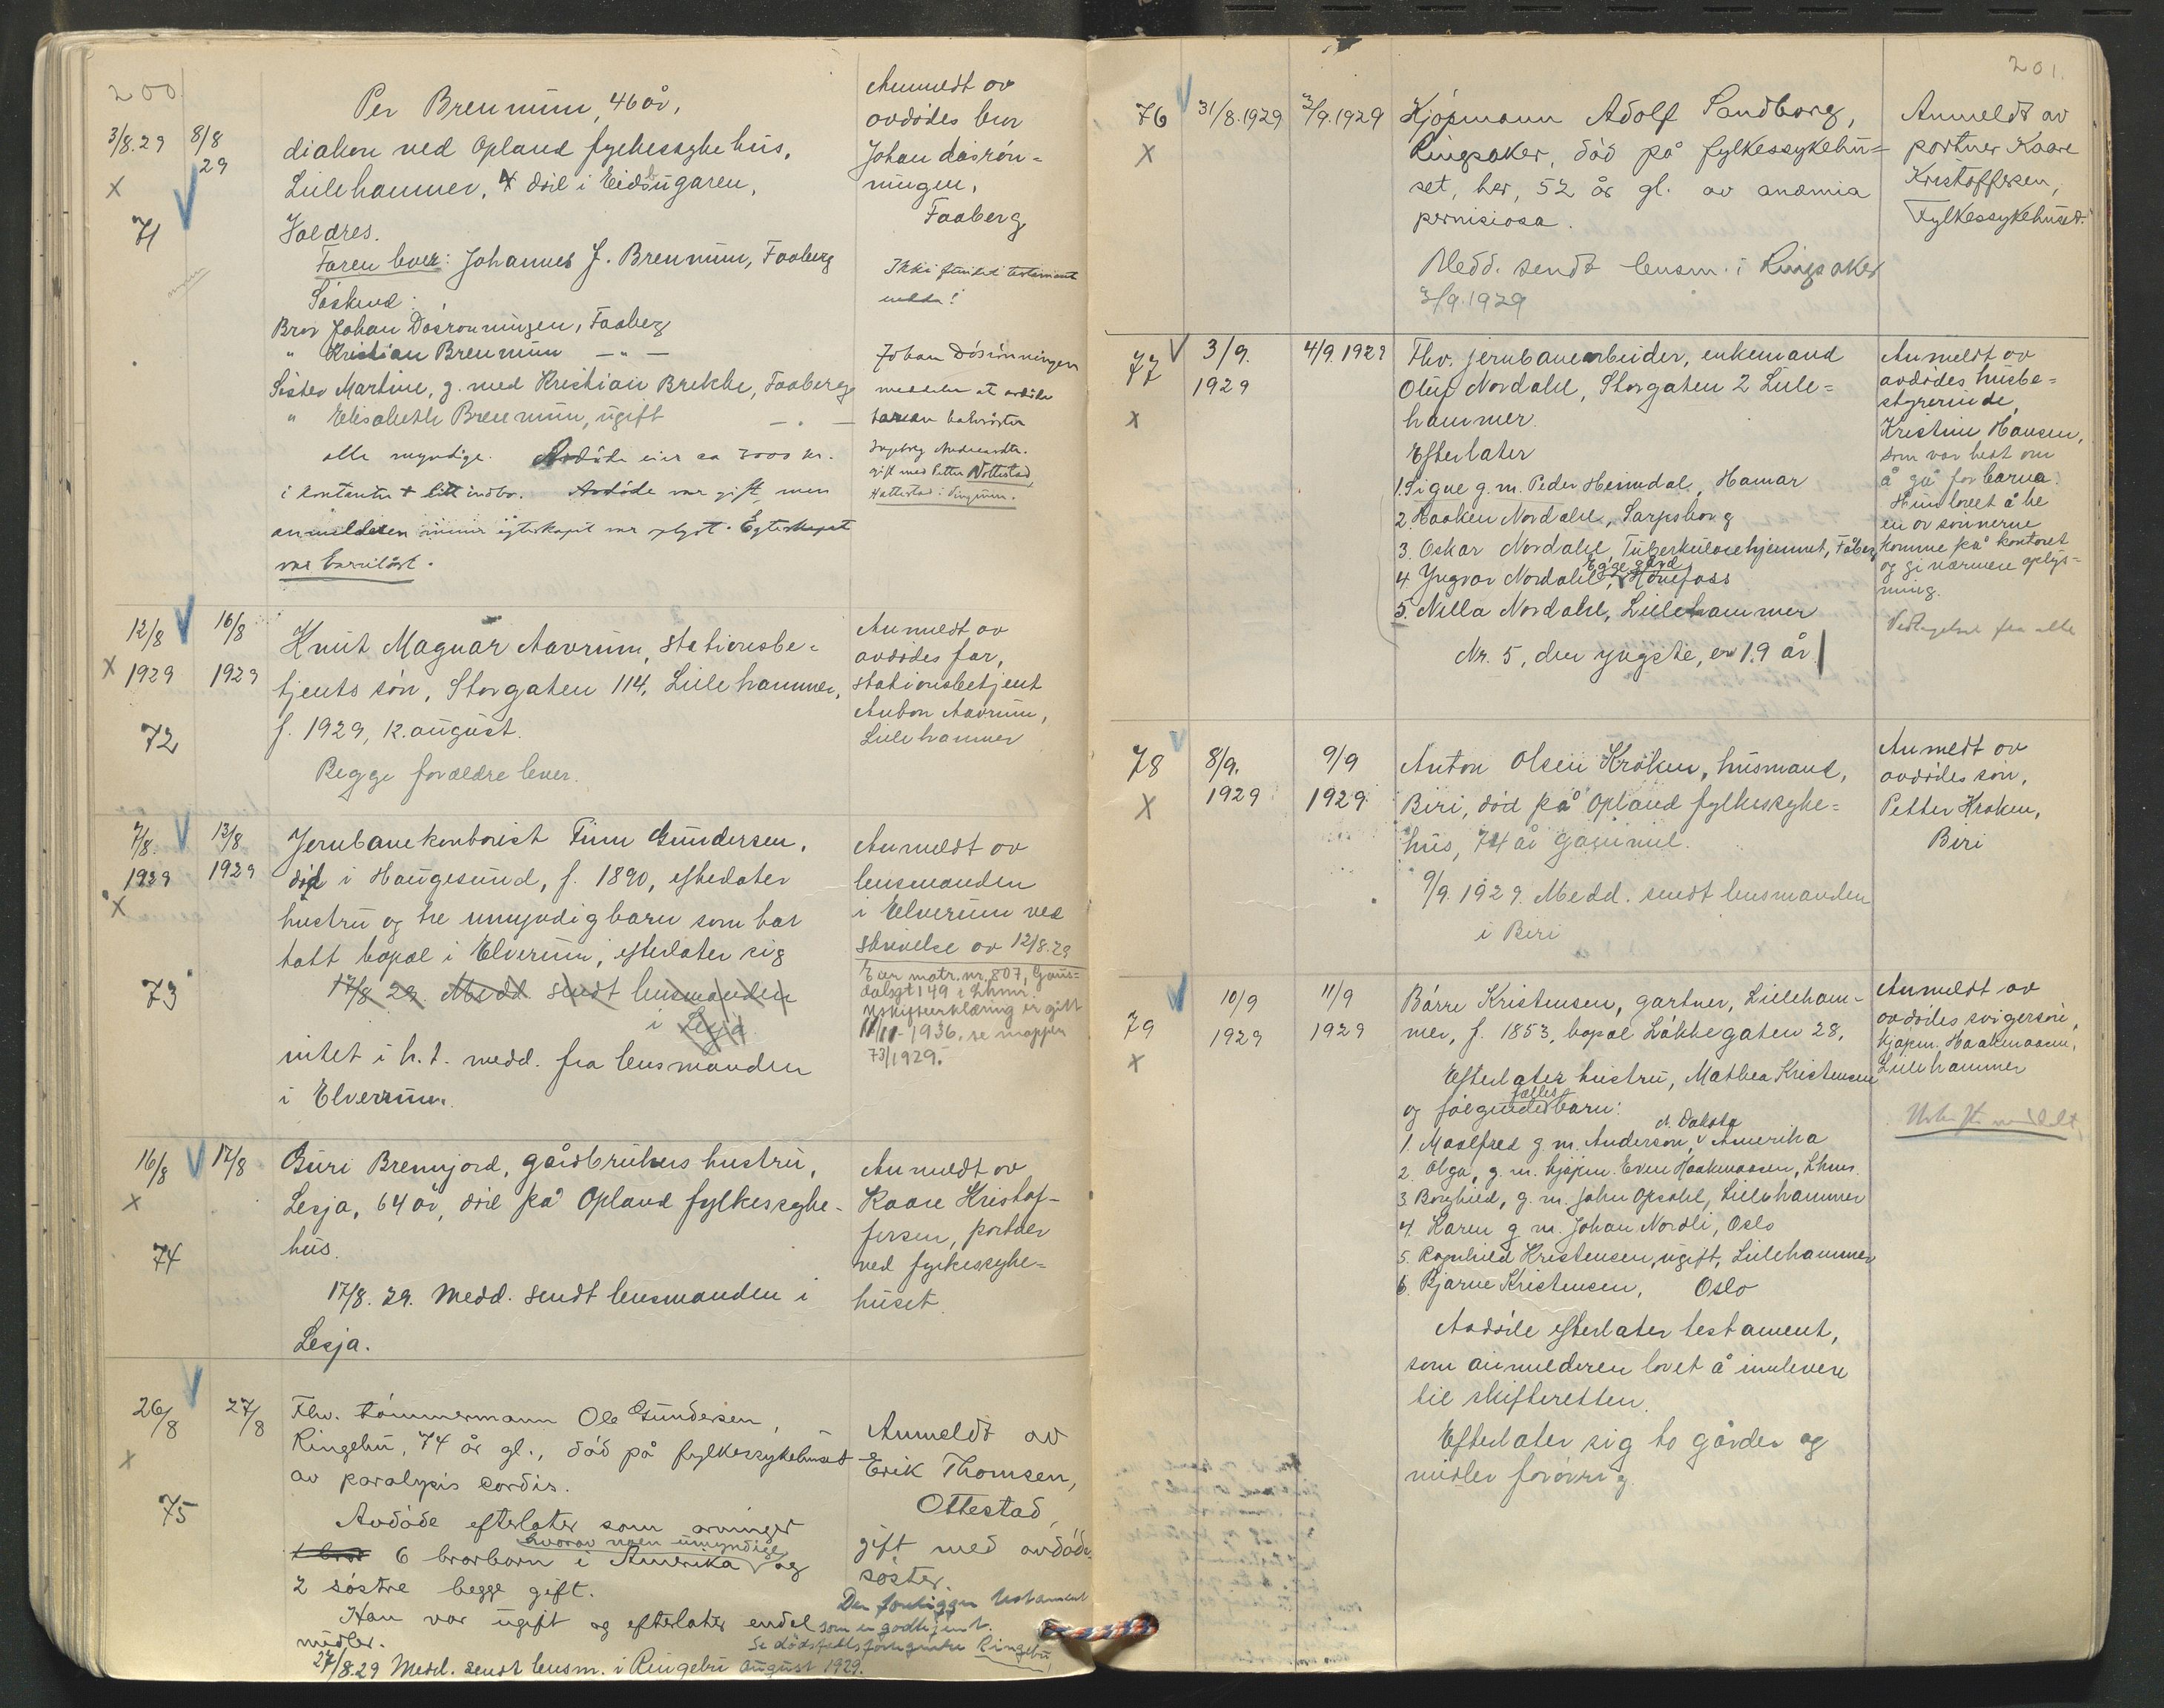 200.
3/8.29
8/8
29
X
71
Per Brenmun, 46 år,
diakon ved Opland fylkessykehus,
Lillehammer, død i
Valdres.
Faren lever: Johannes J. Brenmun, Faaberg
Søskend:
Bror Johan Døsrønningen, Faaberg
" Kristian Brenmun — " —
Søster Martine, g. med Kristian Brekke, Faaberg
" Elisabeth Brenmun, ugift — " —
alle myndige. Avdøde eier ca 3000 kr.
i kontanter + litt indbo. Avdøde var gift, men
anmelderen mener egteskapet var opløst. Egteskapet
var barnløst.
Anmeldt av
avdødes bror
Johan Døsrøn=
ningen,
Faaberg
Johan Døsrønningen
meddeler at avdøde
gift med Petter Nøttestad,
12/8
X 1929
16/8
1929
72
Knut Magnar Aavrum, stationsbe=
tjents søn, Storgaten 114, Lillehammer,
f. 1929, 12. august.
Begge forældre lever.
Anmeldt av
avdødes far,
stationsbetjent
Anton Aavrum,
Lillehammer
7/8
1929
X
13/8
1929
73
Jernbanekontorist Finn Gundersen,
død i Haugesund, f. 1890, efterlater
hustru og tre umyndig barn som har
tatt bopæl i Elverum, efterlater sig
17/8 29. Medd. sendt lensmanden
i Lesja
intet i h. t. medd. fra lensmanden
i Elverum.
Anmeldt av
lensmanden
i Elverum ved
skrivelse av 12/8.29
Eier matr. nr. 807, Gaus=
dalsgt 149 i Lhmr.
Uskifteerklæring er gitt
11/11-1936, se mappen
73/1929.
16/8
X
17/8
74
Guri Brennjord, gårdbrukers hustru,
Lesja, 64 år, død på Opland fylkessyke=
hus.
17/8. 29. Medd. sendt lensmanden i
Lesja.
Anmeldt av
Kaare Kristof-
fersen, portner
ved fylkessyke=
huset.
26/8
X
27/8
75
Fhv. tømmermann Ole Gundersen,
Ringebu, 74 år gl., død på fylkessykehuset
av paralysis cordis.
Avdøde efterlater som arvinger
hvorav noen umyndige
1 bror 6 brorbarn i Amerika og
2 søstre begge gift.
Han var ugift og efterlater endel
midler.
27/8.29 Medd. sendt lensm. i Ringebu
Anmeldt av
Erik Thomsen,
Ottestad,
gift med avdødes
søster.
Der foreligger testament
som er godkjent.
Se dødsfallsfortegnelse Ringebu
august 1929.
201.
76
X
31/8.1929
3/9.1929
Kjøpmann Adolf Sandborg,
Ringsaker, død på fylkessykehu=
set, her, 52 år gl. av anæmia
pernisiosa.
Medd. sendt lensm. i Ringsaker
3/9.1929
Anmeldt av
portner Kaare
Kristoffersen,
Fylkessykehuset.
77
X
3/9.
1929
4/9.1929
Fhv. jernbanearbeider, enkemand
Oluf Nordahl, Storgaten 2 Lille=
hammer.
Efterlater
1. Signe g. m. Peder Heimdal, Hamar
2. Haaken Nordahl, Sarpsborg
3. Oskar Nordahl, Tuberkulosehjemmet, Fåberg
Egge gård
4 Yngvar Nordahl, Hønefoss
5. Nilla Nordahl, Lillehammer
Nr. 5, den yngste, er 19 år.
Anmeldt av
avdødes husbe=
styrerinde,
Kristine Hansen,
som var bedt om
å gå for barna.
Hun lovet å be
en av sønnerne
komme på kontoret
og gi nærmere oplys=
ning.
Vedtagelse fra alle
78
X
8/9.
1929
9/9
1929
Anton Olsen Kroken, husmand,
Biri, død på Opland fylkessyke=
hus, 74 år gammel.
9/9. 1929. Medd. sendt lensmanden
i Biri
Anmeldt av
avdødes søn,
Petter Kroken,
Biri
79
X
10/9
1929
11/9
1929
Børre Kristensen, gartner, Lilleham-
mer, f. 1853, bopæl Løkkegaten 28.
Efterlater hustru, Mathea Kristensen
fælles
og følgende barn:
1. Maalfred g. m. Anderson, Amerika
2. Olga, g. m. kjøpm. Even Haakenaasen, Lhmr.
3. Borghild, g. m. John Opsahl, Lillehammer
4. Karen g m. Johan Nordli, Oslo
5. Ragnhild Kristensen, ugift, Lillehammer
6. Bjarne Kristensen, Oslo
Avdøde efterlater testament,
som anmelderen lovet å innlevere
til skifteretten.
Efterlater sig to gårder og
midler forøvrig.
Anmeldt av
avdødes svigersøn,
kjøpm. Haakenaasen,
Lillehammer